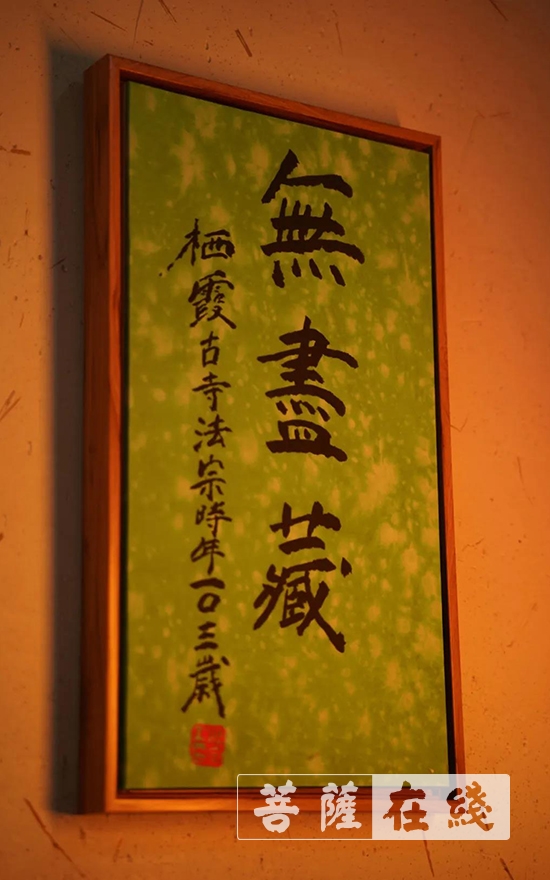 無盡藏
栖霞古寺法宗時年一〇三歲
菩薩在綫